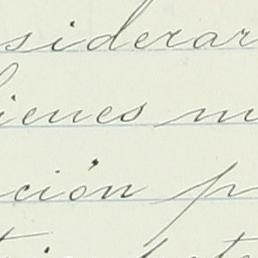 siderar
ienes m
ción p